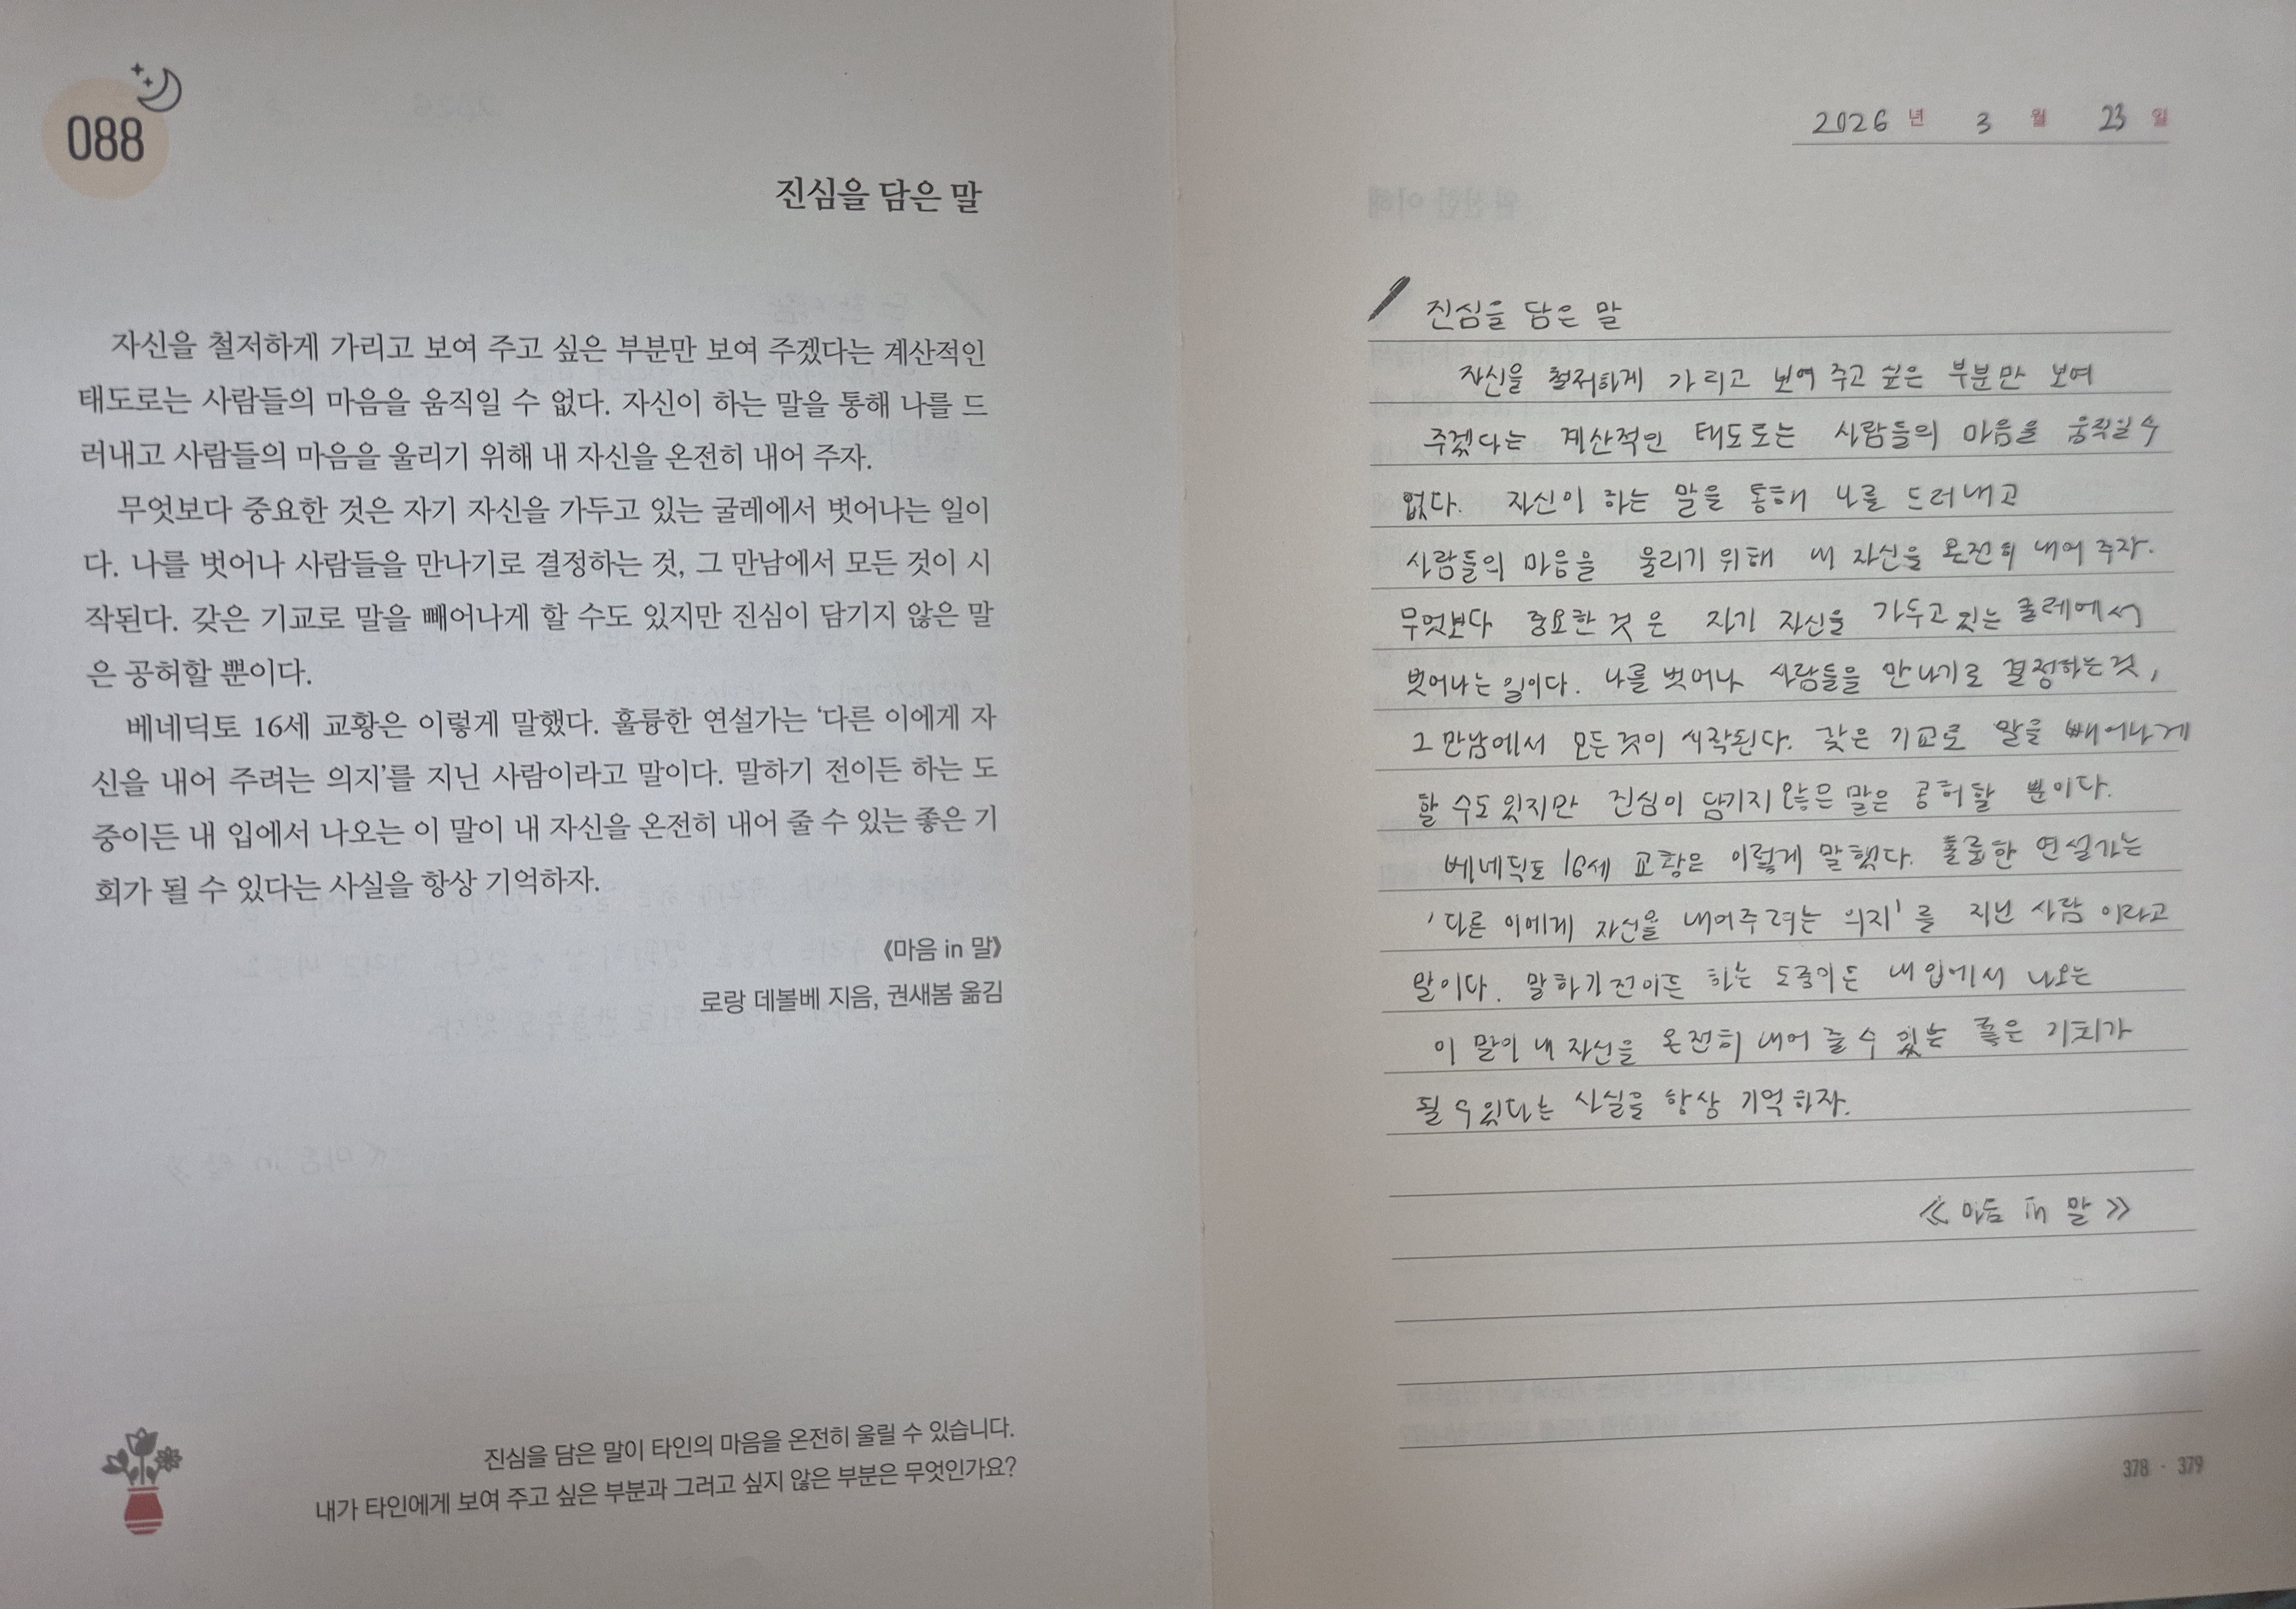 088
진심을 담은 말
자신을 철저하게 가리고 보여 주고 싶은 부분만 보여 주겠다는 계산적인
태도로는 사람들의 마음을 움직일 수 없다. 자신이 하는 말을 통해 나를 드
러내고 사람들의 마음을 울리기 위해 내 자신을 온전히 내어 주자.
무엇보다 중요한 것은 자기 자신을 가두고 있는 굴레에서 벗어나는 일이
다. 나를 벗어나 사람들을 만나기로 결정하는 것, 그 만남에서 모든 것이 시
작된다. 갖은 기교로 말을 빼어나게 할 수도 있지만 진심이 담기지 않은 말
은 공허할 뿐이다.
베네딕토 16세 교황은 이렇게 말했다. 훌륭한 연설가는 ‘다른 이에게 자
신을 내어 주려는 의지’를 지닌 사람이라고 말이다. 말하기 전이든 하는 도
중이든 내 입에서 나오는 이 말이 내 자신을 온전히 내어 줄 수 있는 좋은 기
회가 될 수 있다는 사실을 항상 기억하자.
《마음 in 말》
로랑 데볼베 지음, 권새봄 옮김
진심을 담은 말이 타인의 마음을 온전히 울릴 수 있습니다.
내가 타인에게 보여 주고 싶은 부분과 그러고 싶지 않은 부분은 무엇인가요?
2026 년 3 월 23 일
진심을 담은 말
자신을 철저하게 가리고 보여 주고 싶은 부분만 보여
주겠다는 계산적인 태도로는 사람들의 마음을 움직일 수
없다. 자신이 하는 말을 통해 나를 드러내고
사람들의 마음을 울리기 위해 내 자신을 온전히 내어 주자.
무엇보다 중요한 것은 자기 자신을 가두고 있는 굴레에서
벗어나는 일이다. 나를 벗어나 사람들을 만나기로 결정하는 것,
그 만남에서 모든 것이 시작된다. 갖은 기교로 말을 빼어나게
할 수도 있지만 진심이 담기지 않은 말은 공허할 뿐이다.
베네딕토 16세 교황은 이렇게 말했다. 훌륭한 연설가는
'다른 이에게 자신을 내어주려는 의지'를 지닌 사람 이라고
말이다. 말하기 전이든 하는 도중이든 내 입에서 나오는
이 말이 내 자신을 온전히 내어 줄 수 있는 좋은 기회가
될 수 있다는 사실을 항상 기억하자.
≪ 마음 in 말 ≫
378 · 379